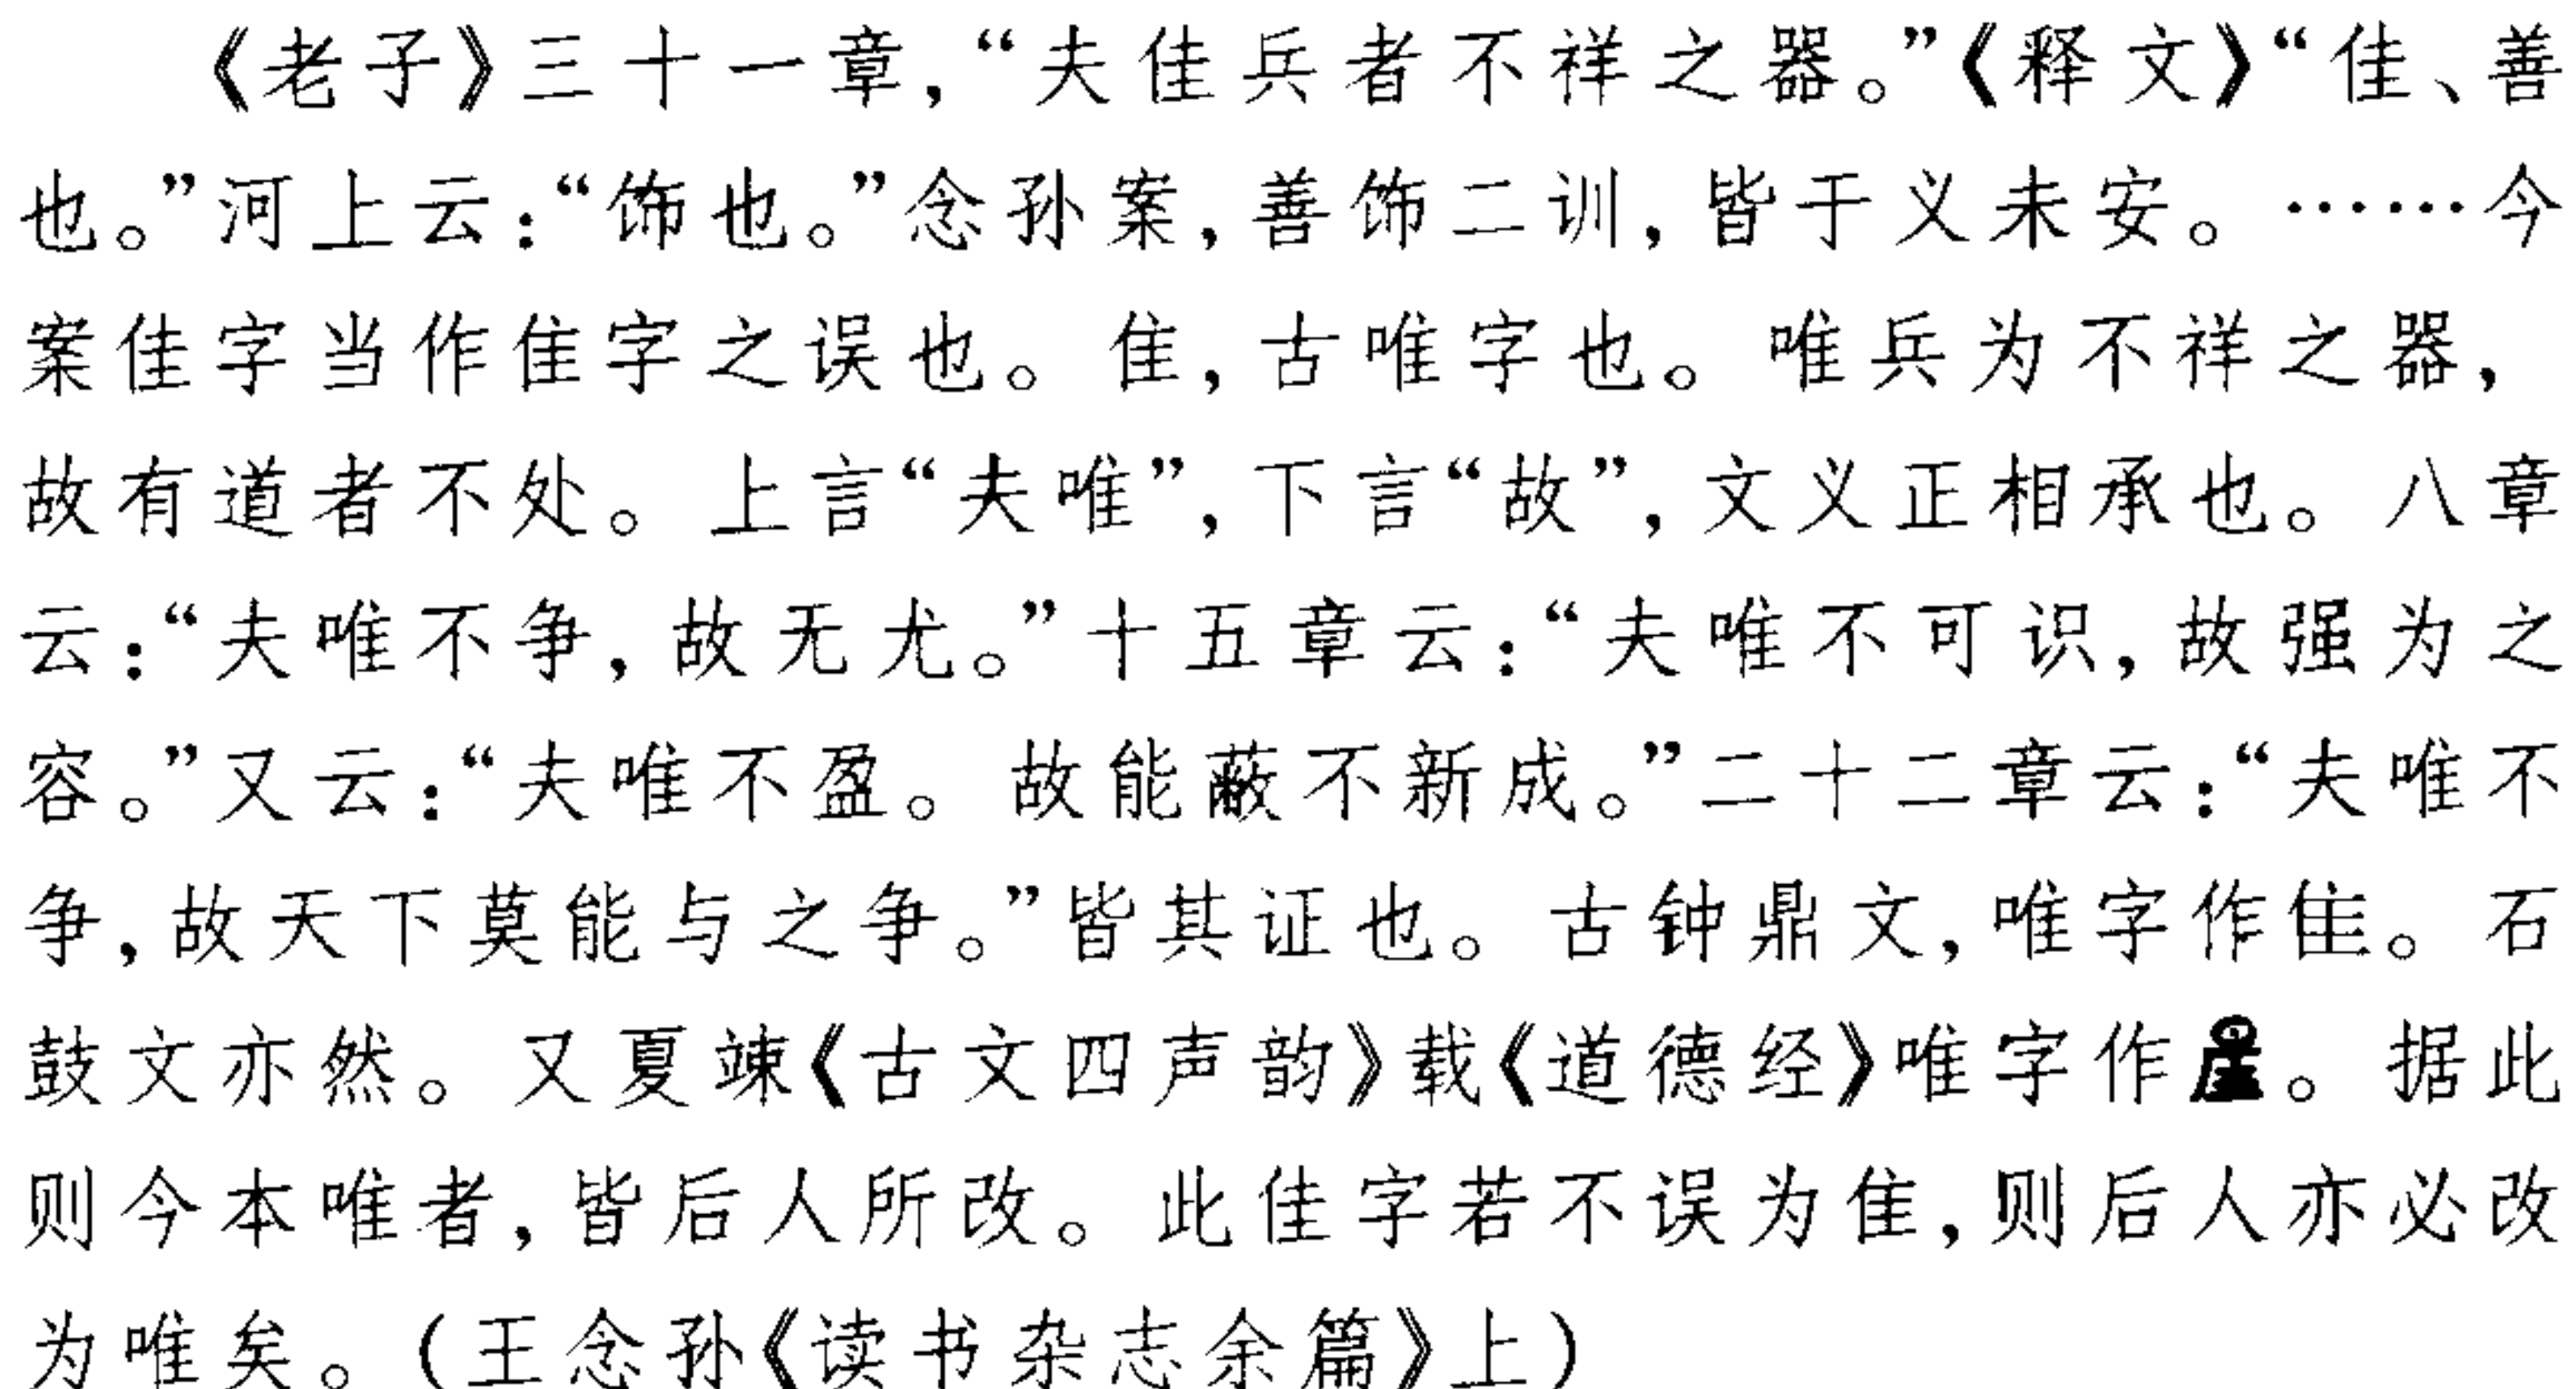 《老子》三十一章,“夫佳兵者不祥之器。”《释文》“佳、善
也。”河上云:“饰也。”念孙案,善饰二训,皆于义未安。……今
案佳字当作隹字之误也。隹,古唯字也。唯兵为不祥之器,
故有道者不处。上言“夫唯”,下言“故”,文义正相承也。八章
云:“夫唯不争,故无尤。”十五章云:“夫唯不可识,故强为之
容。”又云:“夫唯不盈。故能蔽不新成。”二十二章云:“夫唯不
争,故天下莫能与之争。”皆其证也。古钟鼎文,唯字作隹。石
鼓文亦然。又夏竦《古文四声韵》载《道德经》唯字作。据此
则今本唯者,皆后人所改。此佳字若不误为隹,则后人亦必改
为唯矣。(王念孙《读书杂志余篇》上)